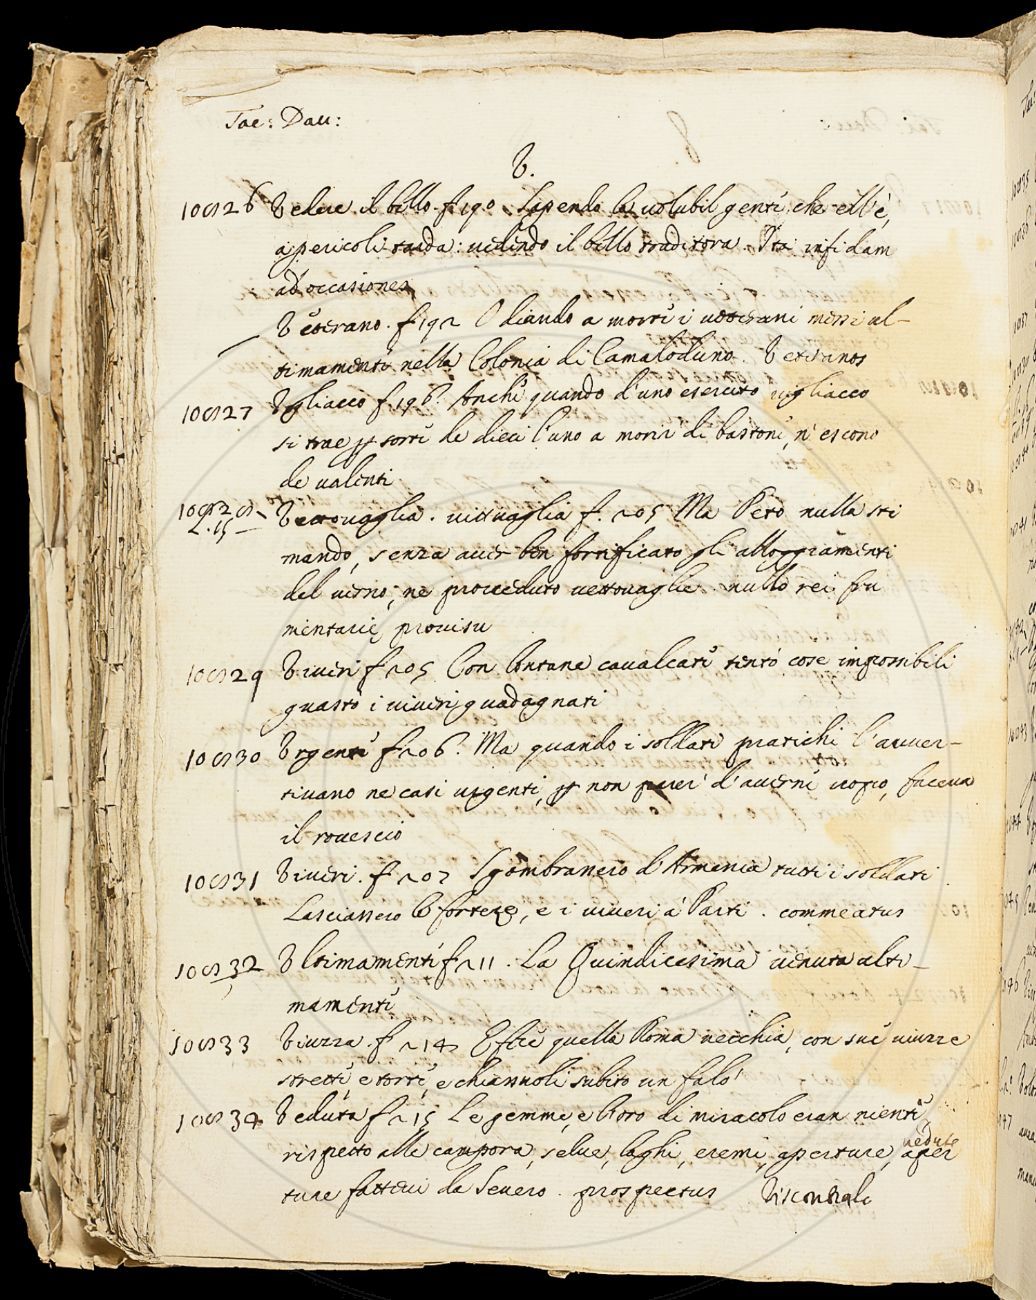 Tac: Dau:
V.
10526 Vedere il bello. f. 190. Sapendo la volubil gente, che ell'è,
a pericoli tarda: vedendo il bello traditora. Ita infidam
ad occasiones
Veterano. f 192 Odiando a morte i veterani messi ul-
timamente nella Colonia di Camaloduno. Veteranos
10527 Vigliacco f 196. Anche quando d'uno esercito vigliacco
si trae per sorte de dieci l'uno a morir di bastone, n'escono
de valenti
10528 Vettovaglia. vittuaglia f. 205 Ma Peto nulla sti
mando, senza aver ben fortificato gli alloggiamenti
del verno; ne proveduto vettovaglie. nullo rei fru
mentarię provisu
10529 Viveri f 205 Con lontane cavalcate tentò cose impossibili
guasto i viveri guadagnati
10530 Urgente f 206. Ma quando i soldati pratichi l'avver-
tivano ne casi urgenti, per non parer d'averne uopo, faceva
il rovescio
10531 Viveri. f 207 Sgombrancio d'Armenia tutti i soldati
Lasciancio le fortezze, e i viveri a' Parti. commeatus
10532 Ultimamente f 211. La Quindicesima venuta ulti-
mamente
10533 Viuzza. f 214 Estie quella Roma vecchia, con sue viuzze
strette e torte, e chiassuoli subito un falò
10534 Veduta f 215 Le gemme, e l'oro di miracolo eran niente
rispetto alle campora, selve, laghi, eremi, aperture, vedute aper
ture fattevi da Severo. prospectus